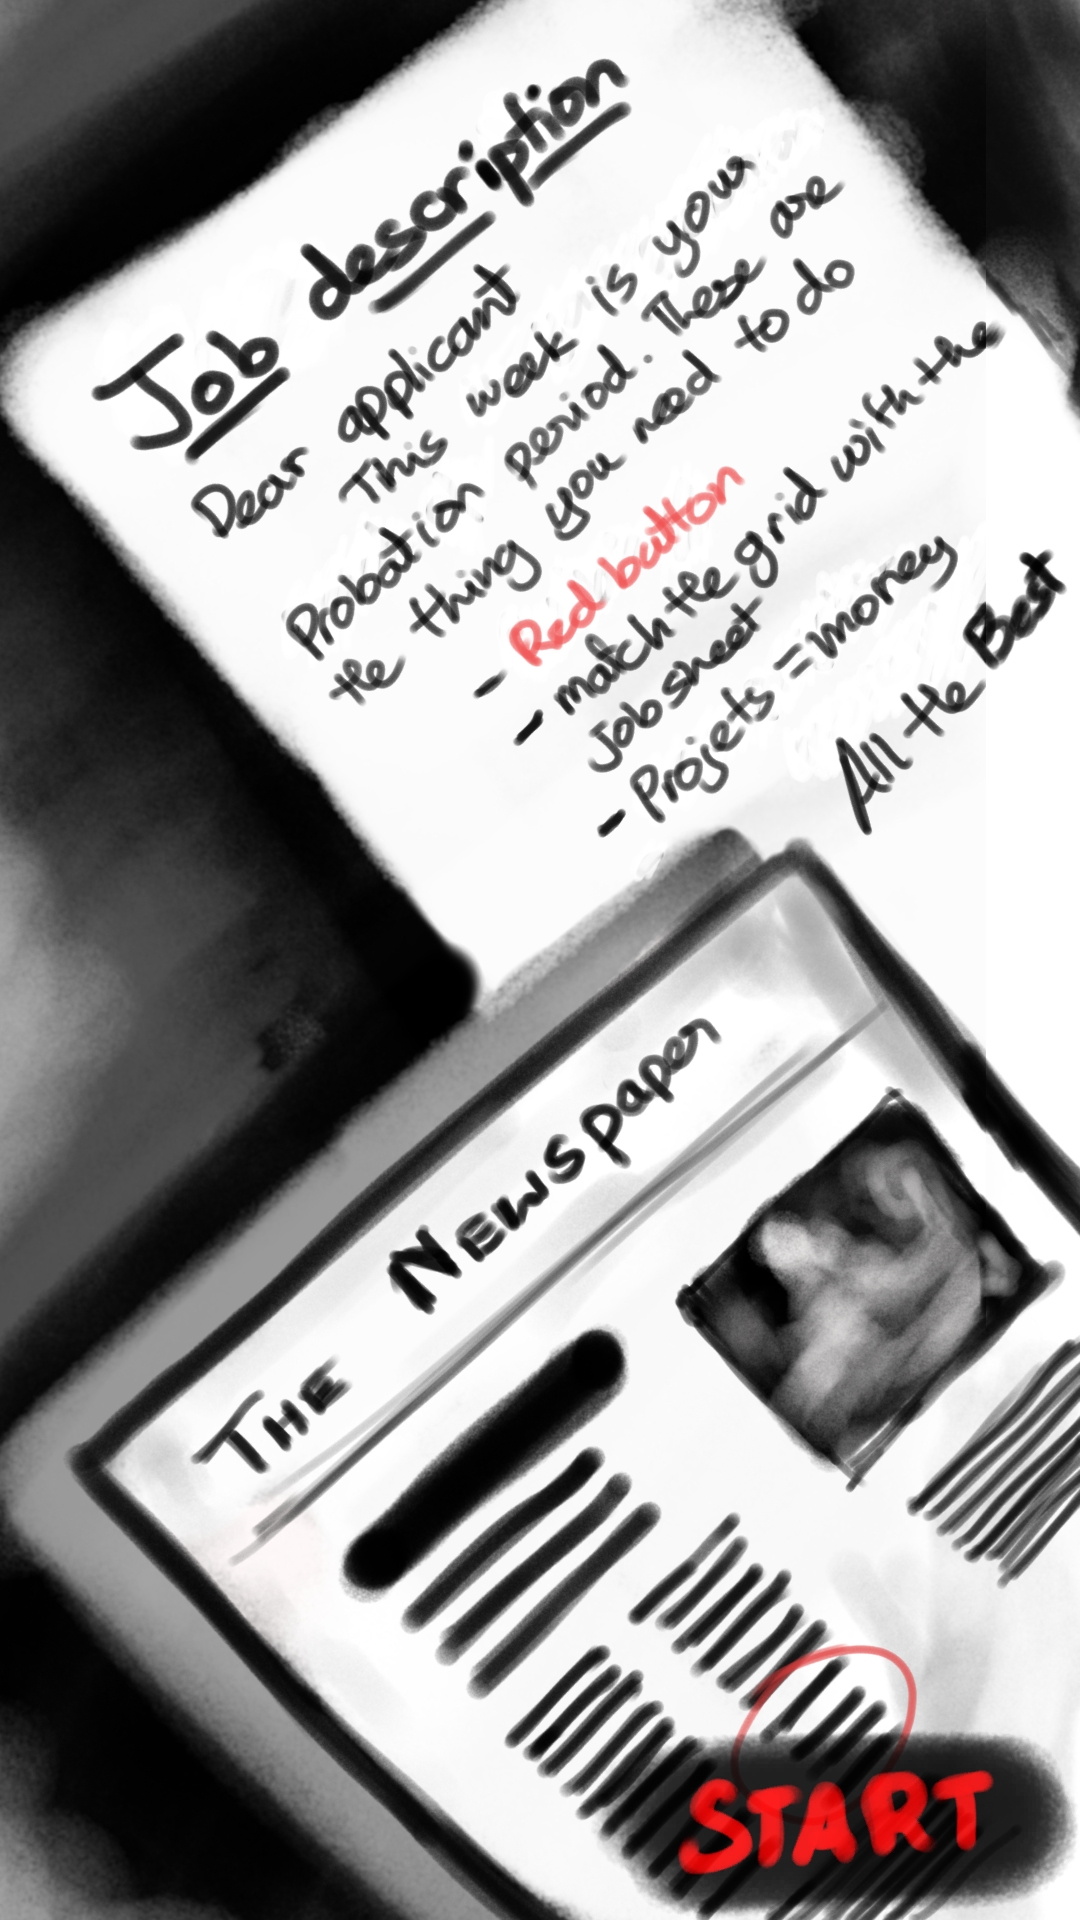 Job description
Dear applicant
This week is your
Probation period. These are
the thing you need to do
- Red button
- match the grid with the
Job sheet
- Projets = money
All the Best
THE NEWSpaper
START